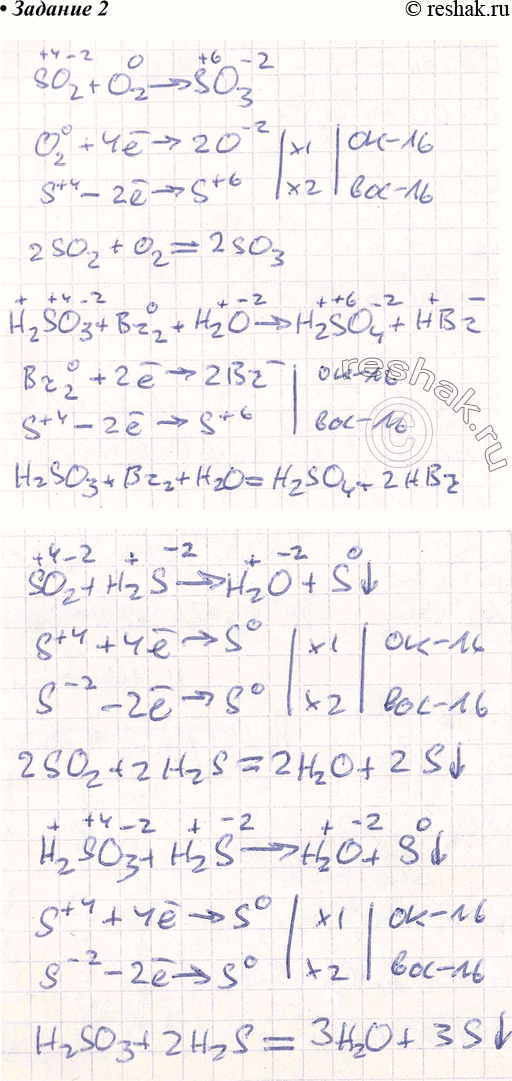 • Задание 2
© reshak.ru
+4 -2 0 +6 -2
SO2 + O2 → SO3
O2⁰ + 4ē → 2O⁻² | x1 | ок-ль
S⁺⁴ - 2ē → S⁺⁶ | x2 | вос-ль
2SO2 + O2 = 2SO3
+ +4 -2 0 + -2 + +6 -2 + -
H2SO3 + Br2 + H2O → H2SO4 + HBr
Br2⁰ + 2ē → 2Br⁻ | ок-ль
S⁺⁴ - 2ē → S⁺⁶ | вос-ль
H2SO3 + Br2 + H2O = H2SO4 + 2HBr
reshak.ru
©
+4 -2 + -2 + -2 0
SO2 + H2S → H2O + S↓
S⁺⁴ + 4ē → S⁰ | x1 | ок-ль
S⁻² - 2ē → S⁰ | x2 | вос-ль
2SO2 + 2H2S = 2H2O + 2S↓
+ +4 -2 + -2 + -2 0
H2SO3 + H2S → H2O + S↓
S⁺⁴ + 4ē → S⁰ | x1 | ок-ль
S⁻² - 2ē → S⁰ | x2 | вос-ль
H2SO3 + 2H2S = 3H2O + 3S↓